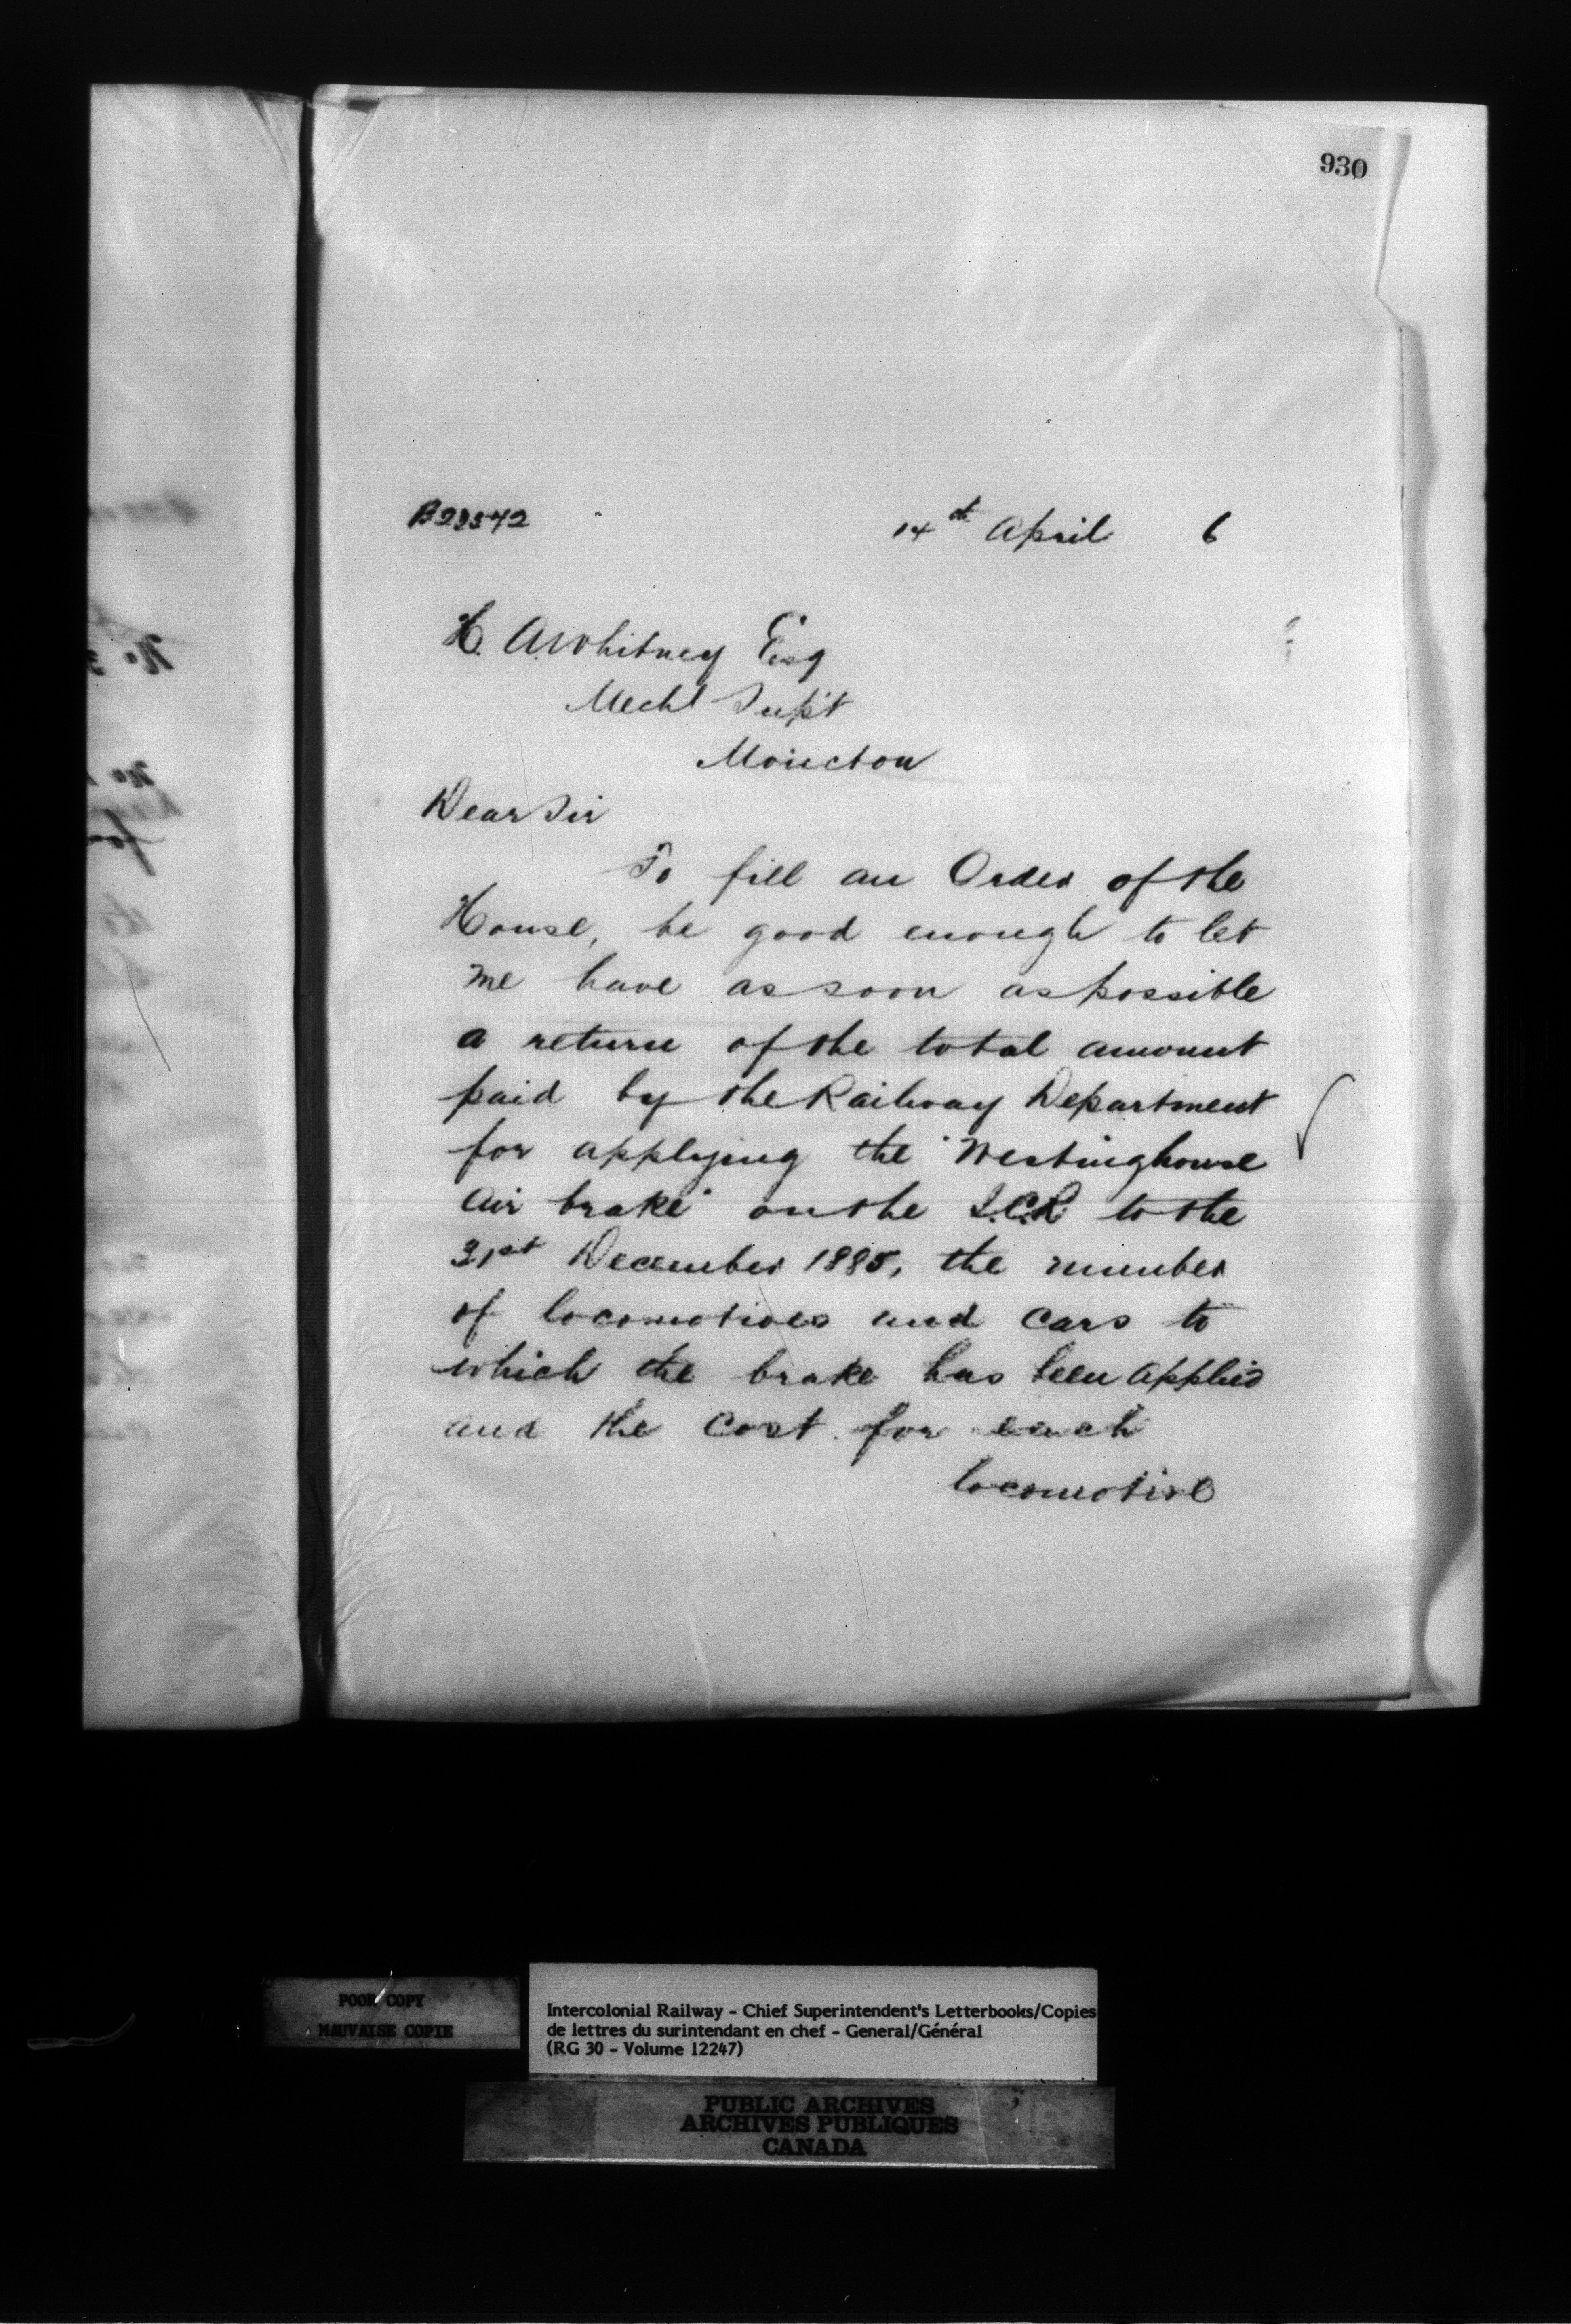 930
B23572
14th April 6
H. A. Whitney Esq
Mechl Supt
Moncton
Dear Sir
To fill an Order of the
House, be good enough to let
me have as soon as possible
a return of the total amount
paid by the Railway Department
for applying the "Westinghouse
Air brake" on the I.C.R. to the
31st December 1885, the number
of locomotives and cars to
which the brake has been applied
and the cost for each
locomotive
POOR COPY
MAUVAISE COPIE
Intercolonial Railway - Chief Superintendent's Letterbooks/Copies
de lettres du surintendant en chef - General/Général
(RG 30 - Volume 12247)
PUBLIC ARCHIVES
ARCHIVES PUBLIQUES
CANADA